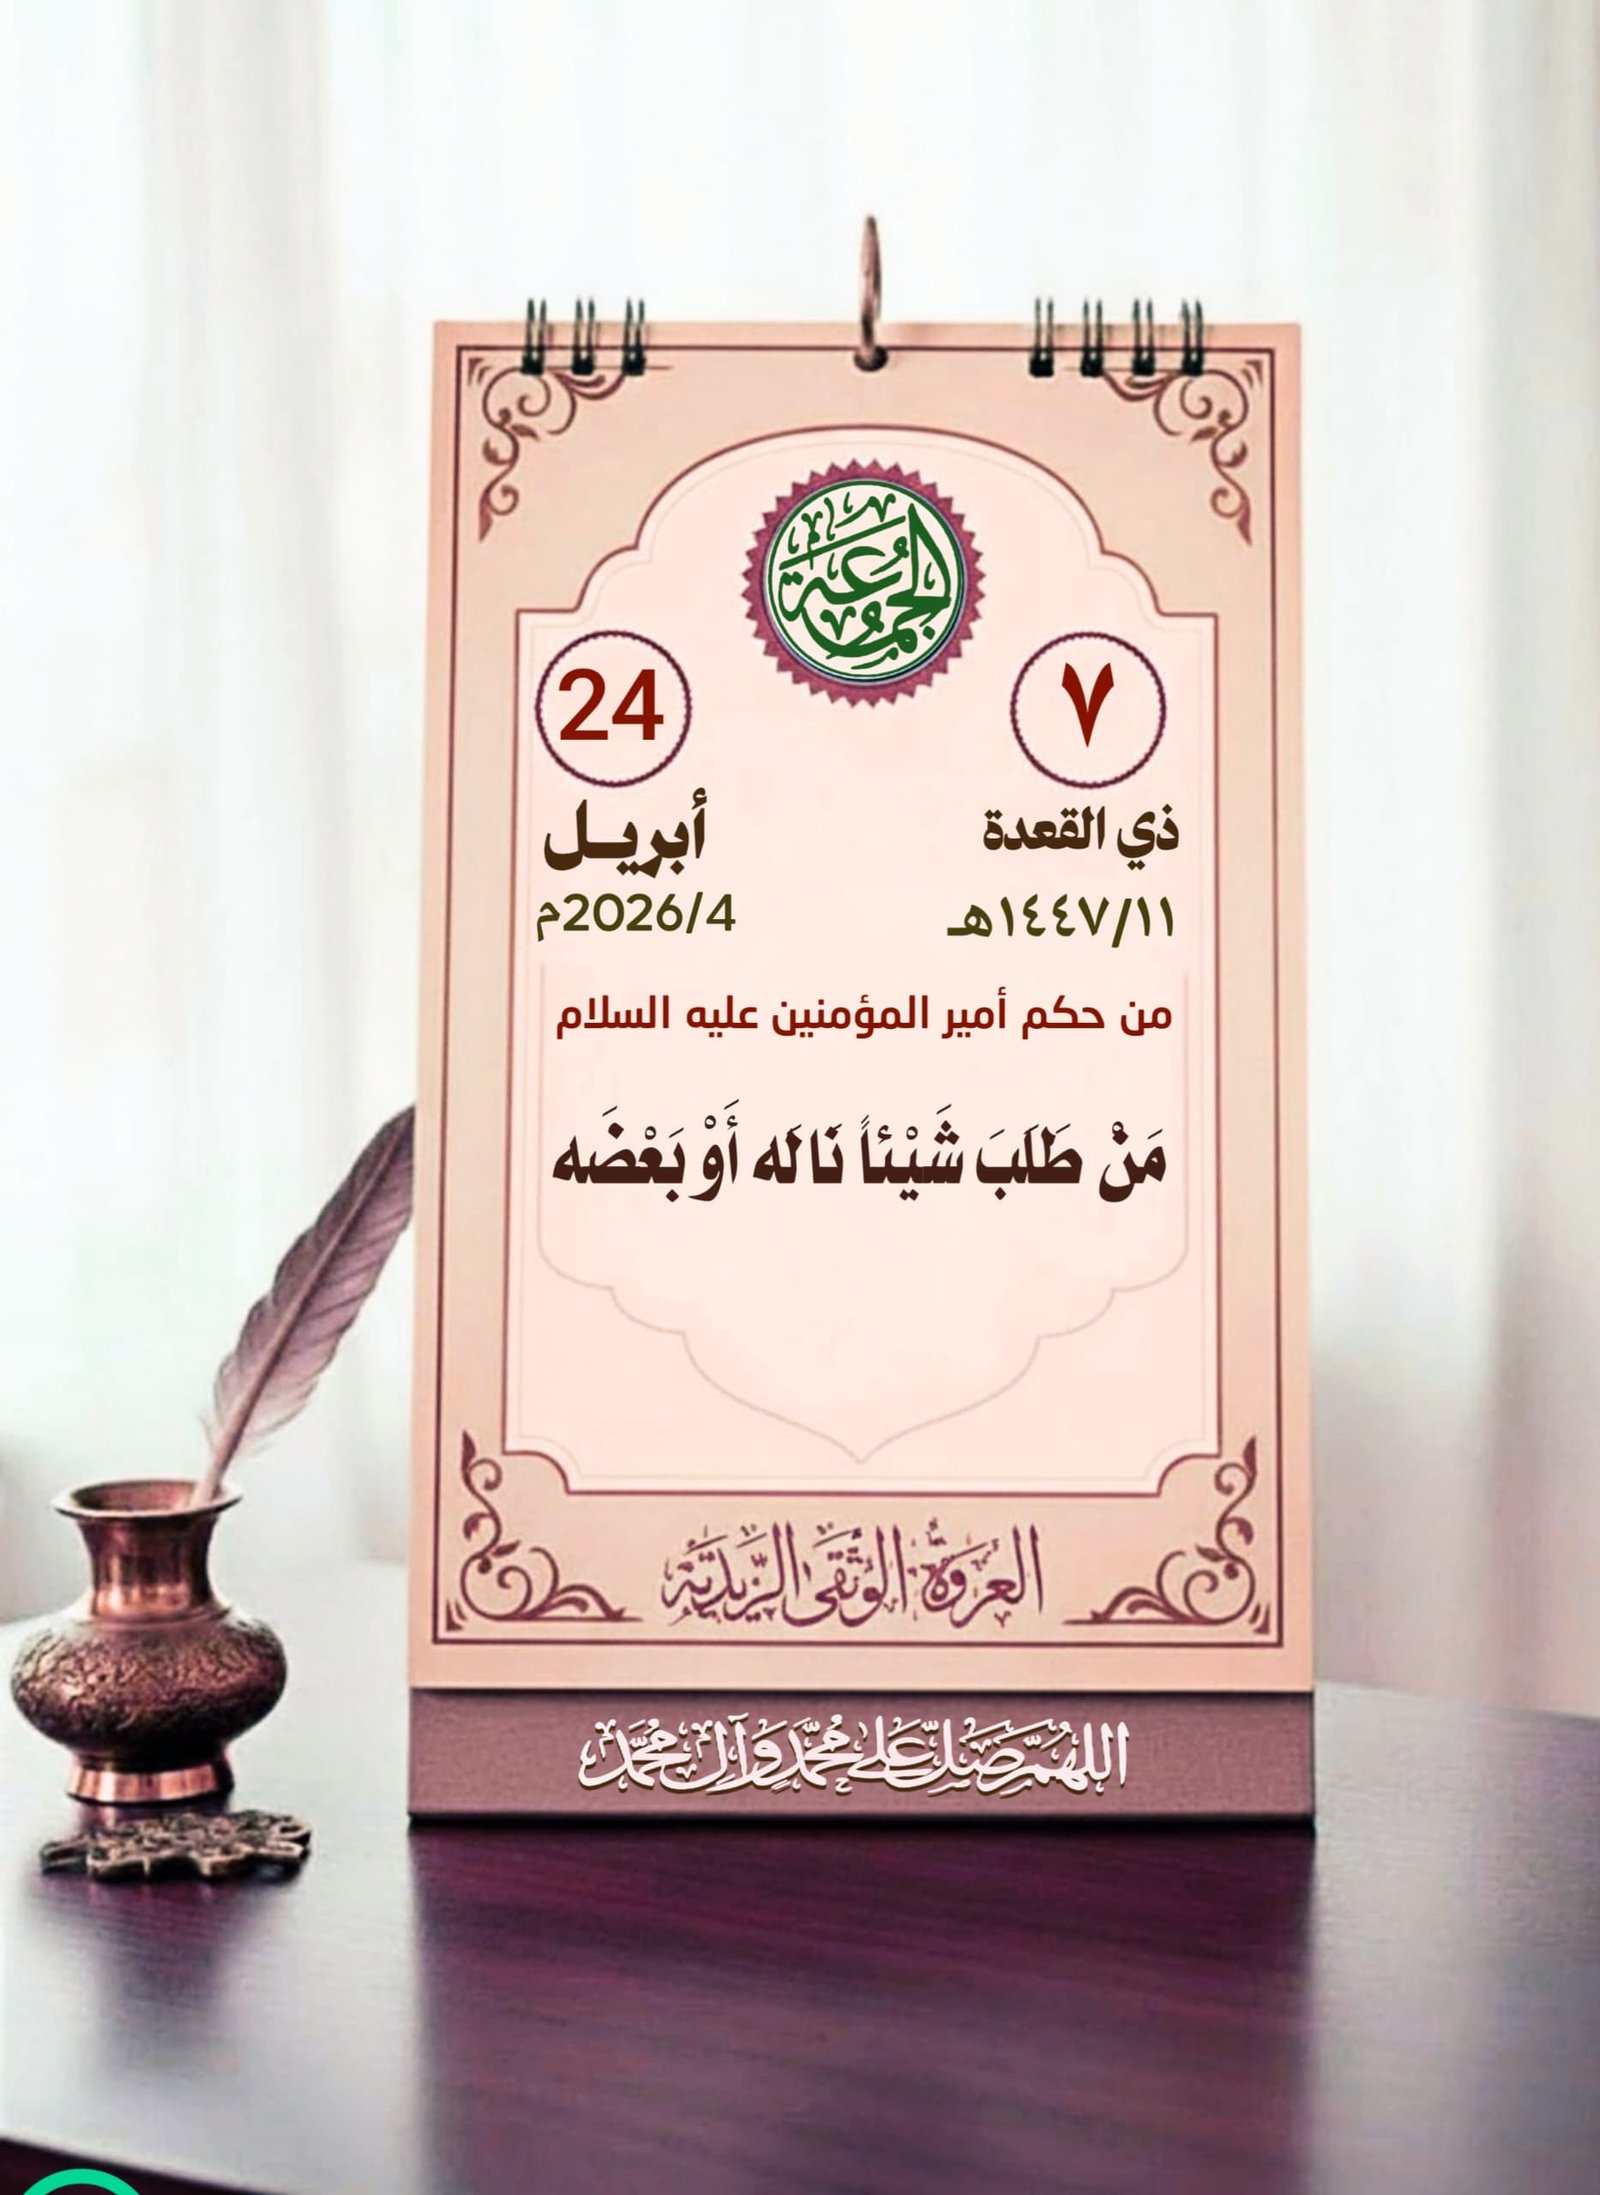 الجمعة
٧
24
ذي القعدة
أبريل
١٤٤٧/١١هـ
2026/4م
من حكم أمير المؤمنين عليه السلام
مَنْ طَلَبَ شَيْئاً نَالَه أَوْ بَعْضَه
العروة الوثقى الزيدية
اللهم صل على محمد وآل محمد